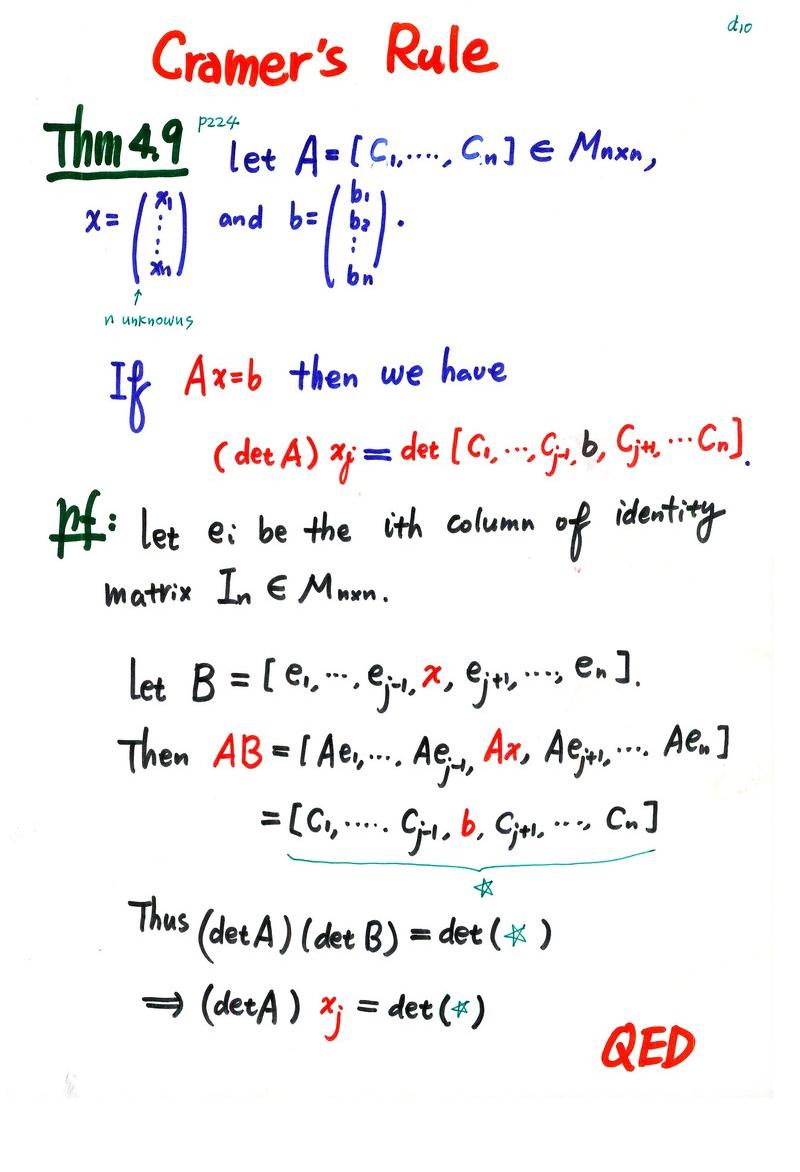 d10
Cramer's Rule
Thm 4.9 P224 let A = [C₁, ...., Cₙ] ∈ Mₙₓₙ,
x = (x₁ ⋮ xₙ) and b = (b₁ b₂ ⋮ bₙ).
↑
n unknowns
If Ax=b then we have
(det A) xⱼ = det [C₁, ..., Cⱼ₋₁, b, Cⱼ₊₁, ... Cₙ].
pf: let eᵢ be the ith column of identity
matrix Iₙ ∈ Mₙₓₙ.
let B = [e₁, ..., eⱼ₋₁, x, eⱼ₊₁, ...., eₙ].
Then AB = [Ae₁, .... Aeⱼ₋₁, Ax, Aeⱼ₊₁, .... Aeₙ]
= [C₁, ..... Cⱼ₋₁, b, Cⱼ₊₁, ...., Cₙ]
☆
Thus (det A)(det B) = det(☆)
⟹ (det A) xⱼ = det(☆)
QED